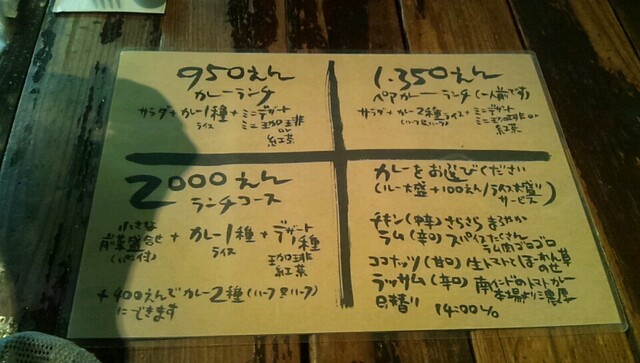 950えん
カレーランチ
サラダ + カレー1種 + ミニデザート
ライス ミニ珈琲
or
紅茶
1.350えん
ペアカレーランチ (一人前です)
サラダ + カレー2種 + ミニデザート
(ハーフ&ハーフ) ライス ミニ珈琲 or
紅茶
2000えん
ランチコース
小さな
前菜盛合せ + カレー1種 + デザート1種
ライス
珈琲
紅茶
+400えんでカレー2種 (ハーフ&ハーフ)
にできます
カレーをお選びください
(ルー大盛+100えん/ライス大盛り
サービス)
チキン (中辛) さらさら まろやか
ラム (辛口) スパイスたくさん
ラム肉ゴロゴロ
ココナッツ (甘口) 生トマトとほーれん草
のせ
ラッサム (辛口) 南インドのトマトカレー
本場より濃厚
日替り 14:00%